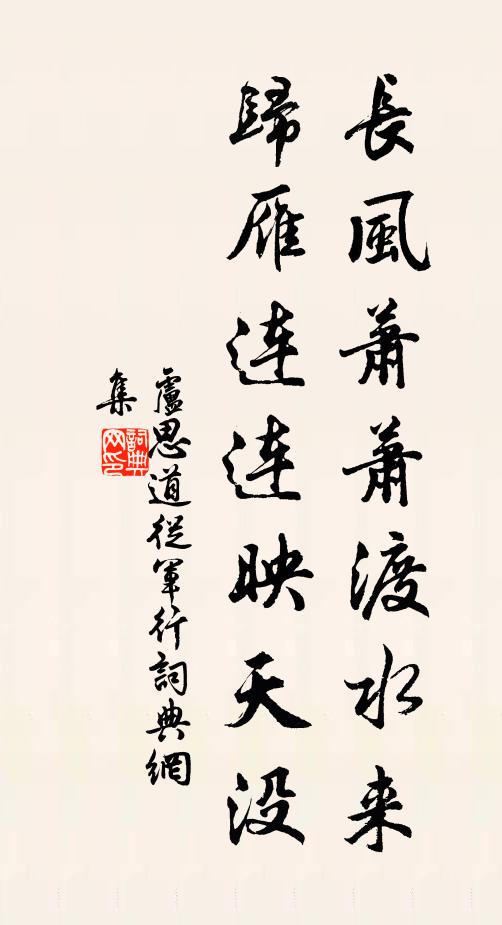 長風蕭蕭渡水来
歸雁連連映天没
盧思道從軍行詞典網
集
詞典
网印